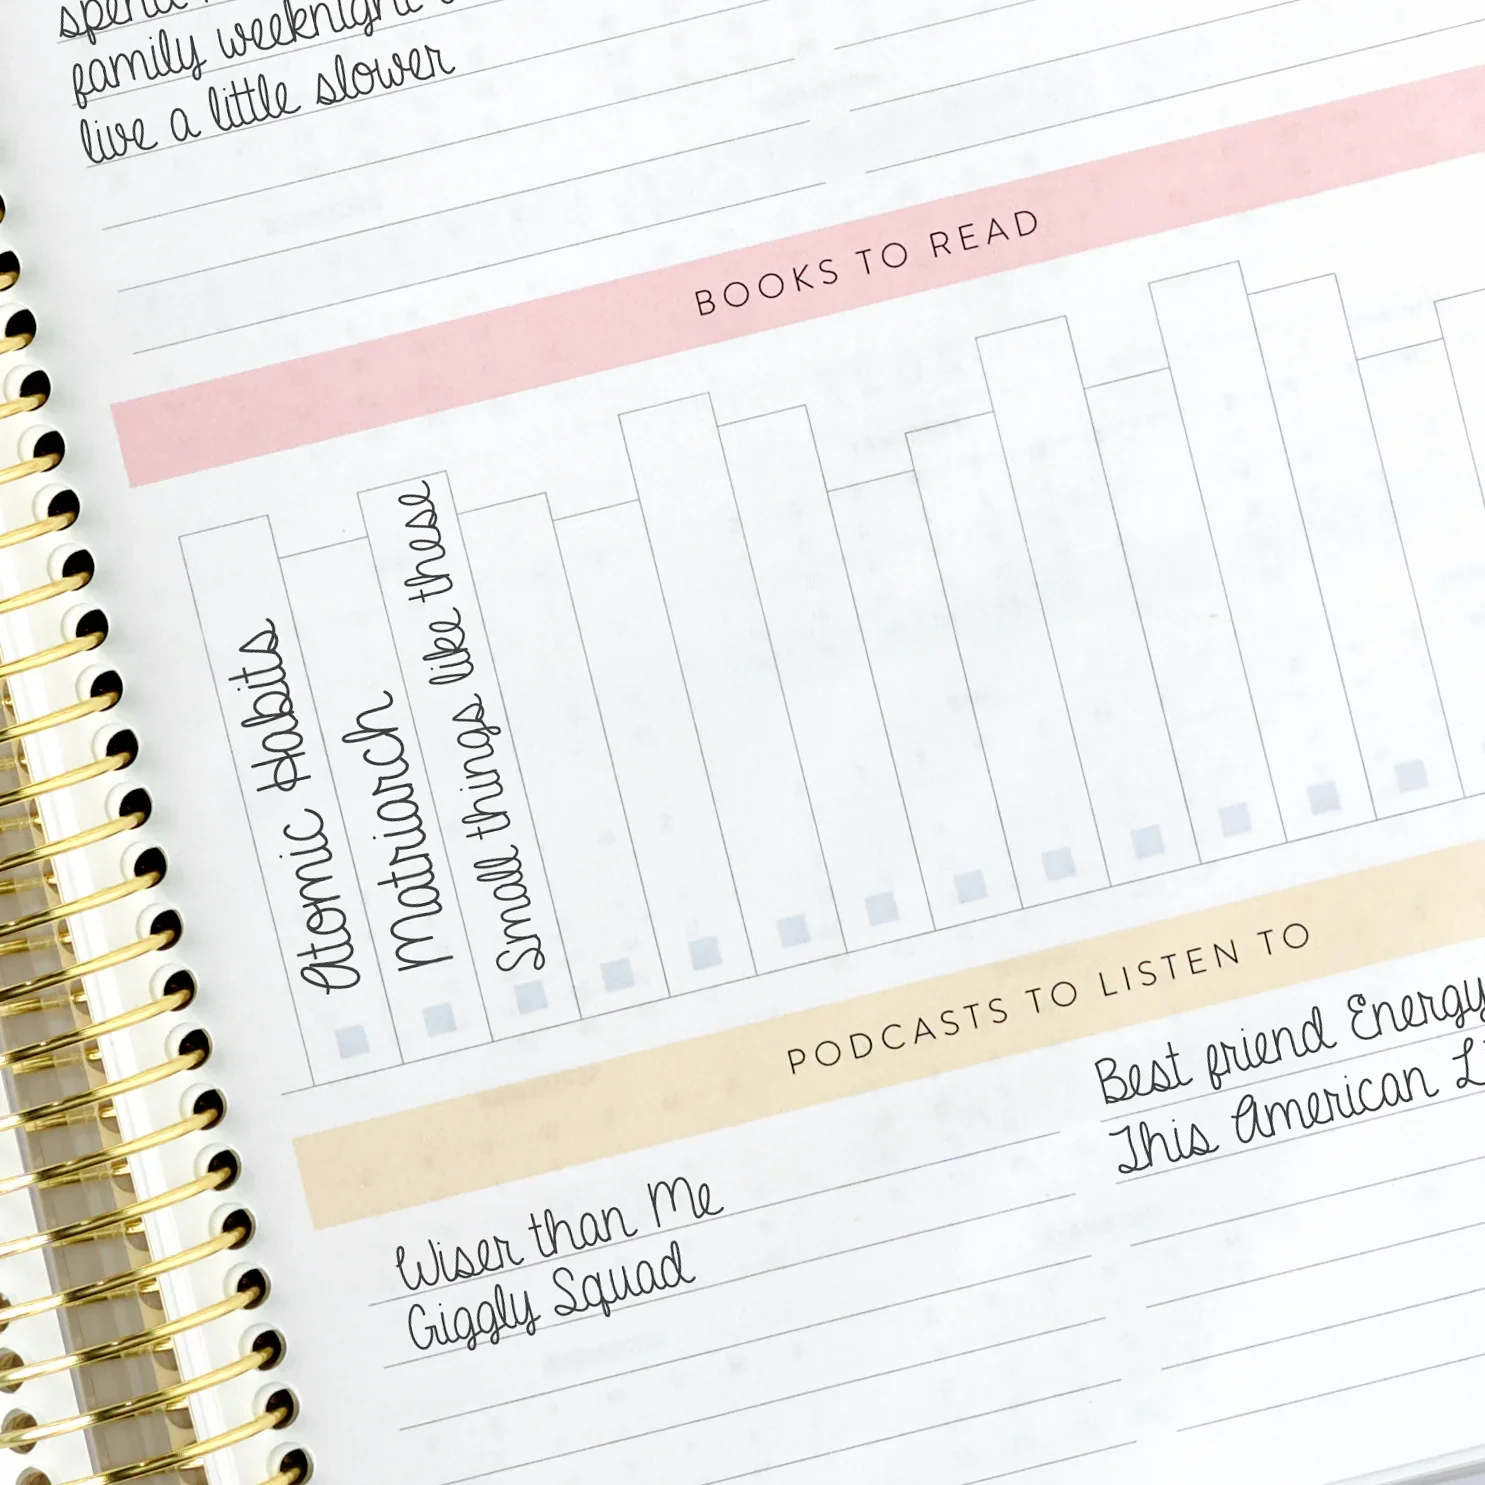 spend
family weeknight
live a little slower
BOOKS TO READ
Atomic Habits
Matriarch
Small things like these
PODCASTS TO LISTEN TO
Wiser than Me
Giggly Squad
Best friend Energy
This American